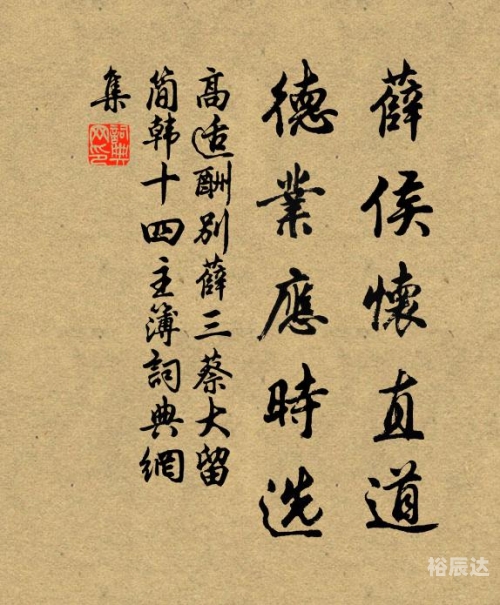 薛侯懷直道
德業應時选
高适酬别薛三蔡大留
简韩十四主簿詞典網
集
詞典網印
裕辰达